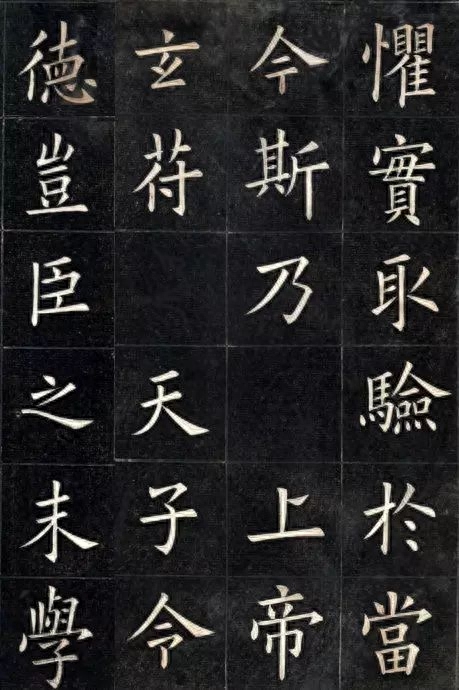 懼實耴驗於當
今斯乃 上帝
玄苻 天子令
徳豈臣之末學